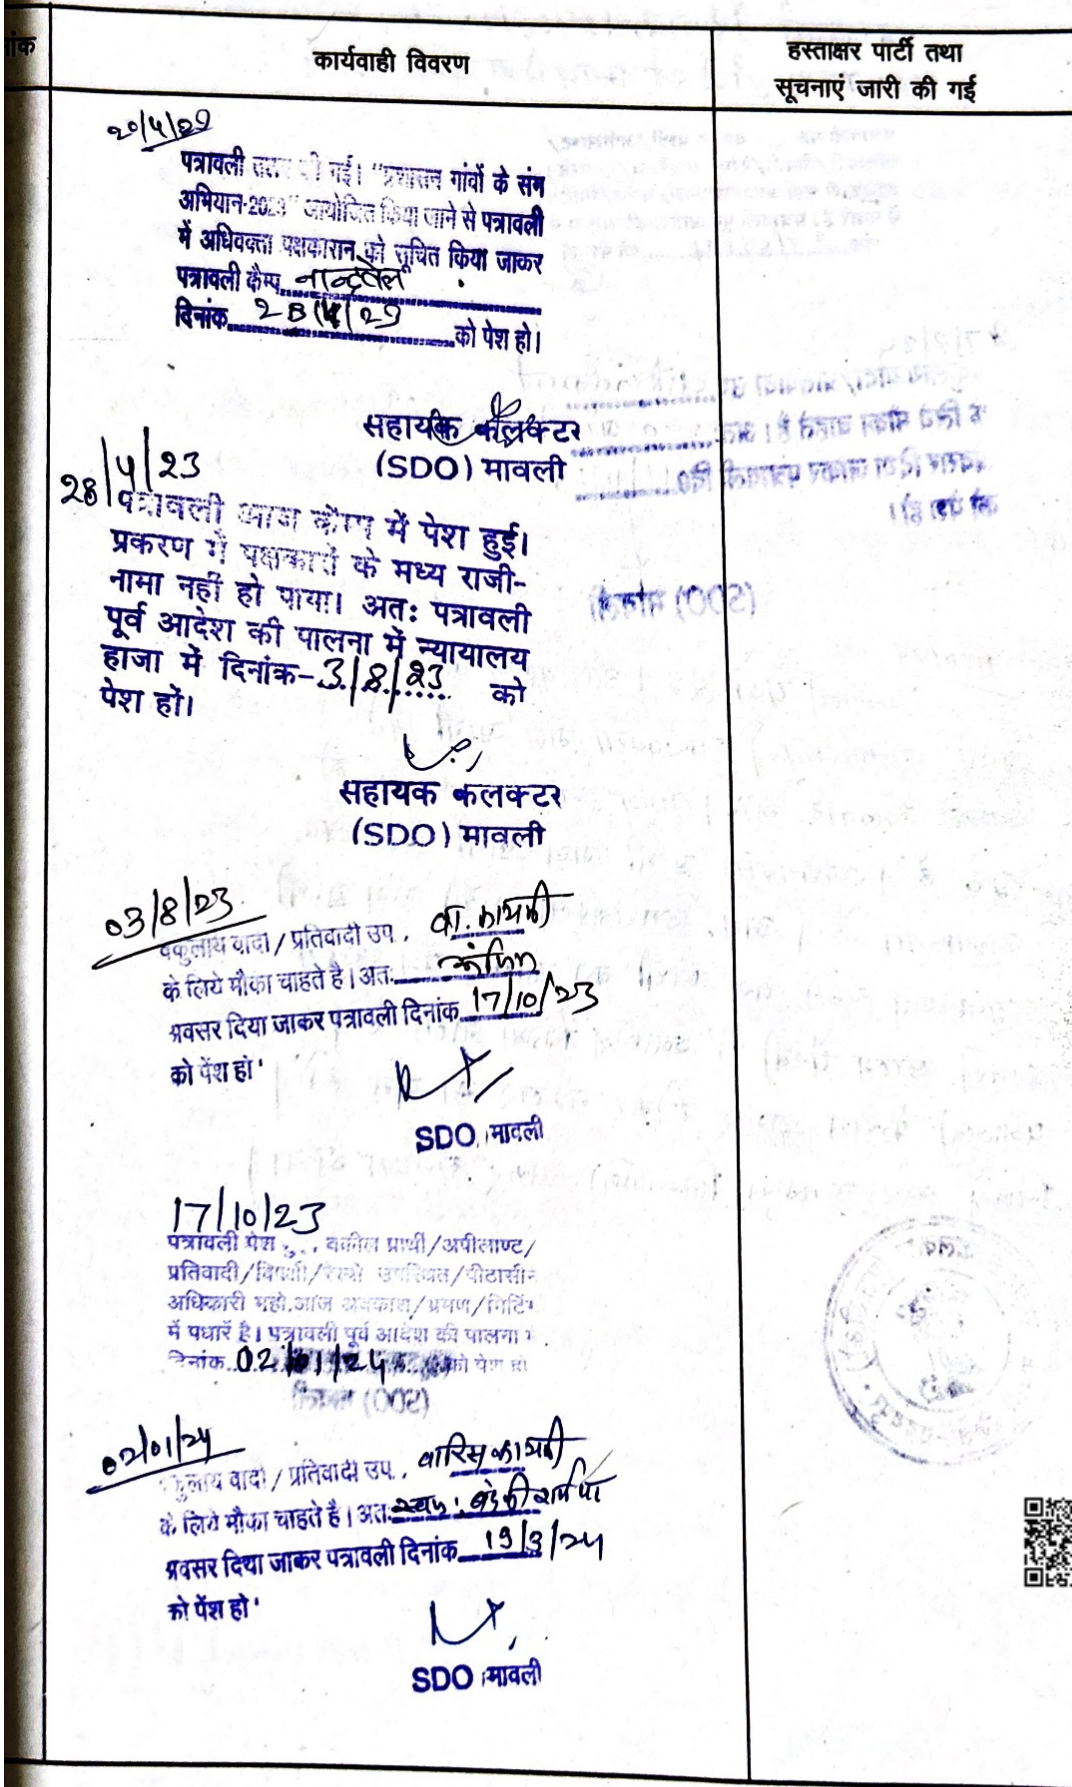 ांक
कार्यवाही विवरण
हस्ताक्षर पार्टी तथा
सूचनाएं जारी की गई
20/4/23
पत्रावली तलब की गई। "प्रशासन गांवों के संग
अभियान-2023" आयोजित किया जाने से पत्रावली
में अधिवक्ता पक्षकारान को सूचित किया जाकर
पत्रावली कैम्प नान्दवेल
दिनांक 28/4/23 को पेश हो।
सहायक कलक्टर
(SDO) मावली
28/4/23
पत्रावली आज कैम्प में पेश हुई।
प्रकरण में पक्षकारों के मध्य राजी-
नामा नहीं हो पाया। अतः पत्रावली
पूर्व आदेश की पालना में न्यायालय
हाजा में दिनांक-3/8/23 को
पेश हों।
सहायक कलक्टर
(SDO) मावली
03/8/23
वकुलाय वादी / प्रतिवादी उप.
के लिये मौका चाहते है। अतः
अवसर दिया जाकर पत्रावली दिनांक 17/10/23
को पेंश हो
SDO मावली
17/10/23
पत्रावली पेश वकील प्रार्थी/अपीलाण्ट/
प्रतिवादी/विपक्षी/रेस्पो उपस्थित/पीठासीन
अधिकारी महो.आज अवकाश/भ्रमण/मिटिंग
में पधारें है। पत्रावली पूर्व आदेश की पालना में
दिनांक 02/01/24 को पेश हो
(SDO) मावली
02/01/24
वकुलाय वादी / प्रतिवादी उप. वारिस कायमी
के लिये मौका चाहते है। अतः
अवसर दिया जाकर पत्रावली दिनांक 19/3/24
को पेंश हो
SDO मावली